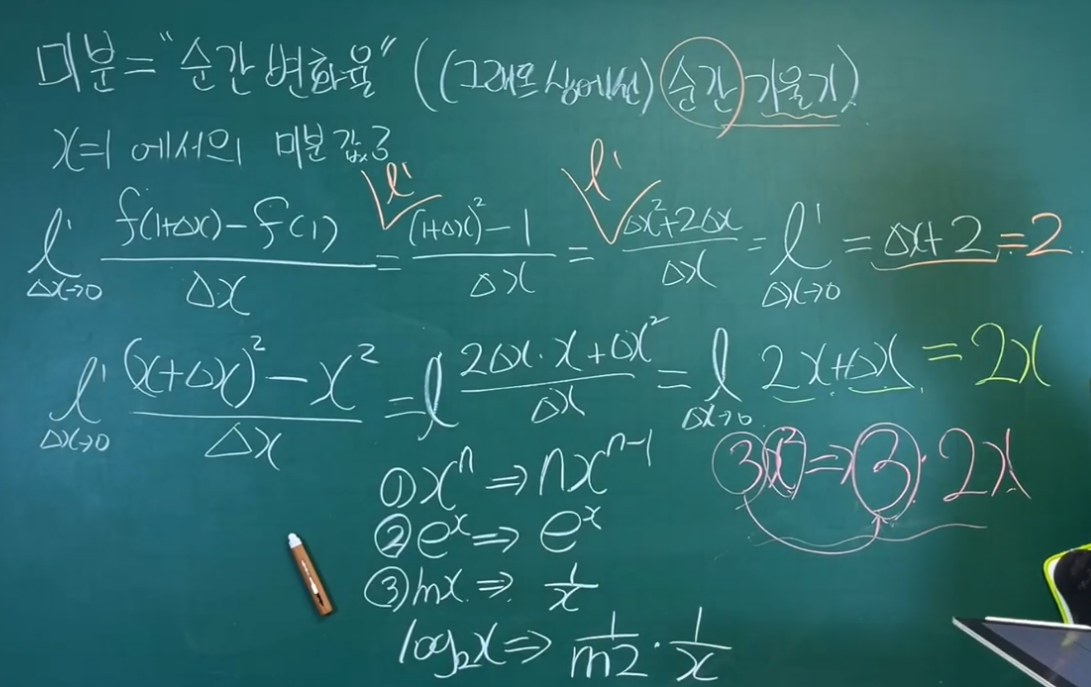 미분 = "순간 변화율" ((그래프 상에선) 순간 기울기)
x=1 에서의 미분 값?
li Δx→0 f(1+Δx)-f(1) / Δx = li (1+Δx)²-1 / Δx = li Δx²+2Δx / Δx = li Δx→0 = Δx+2 = 2
li Δx→0 (x+Δx)²-x² / Δx = l 2Δx·x+Δx² / Δx = l Δx→0 2x+Δx = 2x
3x² ⇒ 3·2x
① xⁿ ⇒ nxⁿ⁻¹
② eˣ ⇒ eˣ
③ lnx ⇒ 1/x
log₂x ⇒ 1/ln2 · 1/x